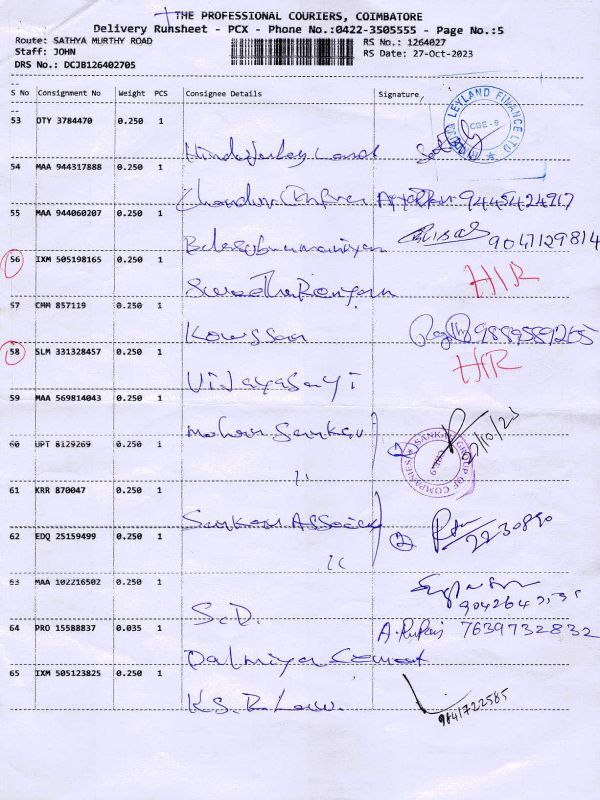 THE PROFESSIONAL COURIERS, COIMBATORE
Delivery Runsheet - PCX - Phone No.:0422-3505555 - Page No.:5
Route: SATHYA MURTHY ROAD
RS No.: 1264027
Staff: JOHN
RS Date: 27-Oct-2023
DRS No.: DCJB126402705
S No Consignment No Weight PCS Consignee Details Signature
53 OTY 3784470 0.250 1
LEYLAND FINANCE
LTD
CBE-9
54 MAA 944317888 0.250 1
9445424917
55 MAA 944060207 0.250 1
Balasubramaniyan
9047129814
56 IXM 505198165 0.250 1
HIR
57 CMM 857119 0.250 1
Kowsson
58 SLM 331328457 0.250 1
HIR
Vijayasayi
59 MAA 569814043 0.250 1
Mohan Sankar
2
60 UPT 8129269 0.250 1
SANKAR GROUP OF COMPANIES
CBE-9
61 KRR 870047 0.250 1
Sankar Associa
2
62 EDQ 25159499 0.250 1
2230890
63 MAA 102216502 0.250 1
S.D.
64 PRO 15588837 0.035 1
7639732832
Dalmiya Cement
65 IXM 505123825 0.250 1
K.S.R Law.
9841722585